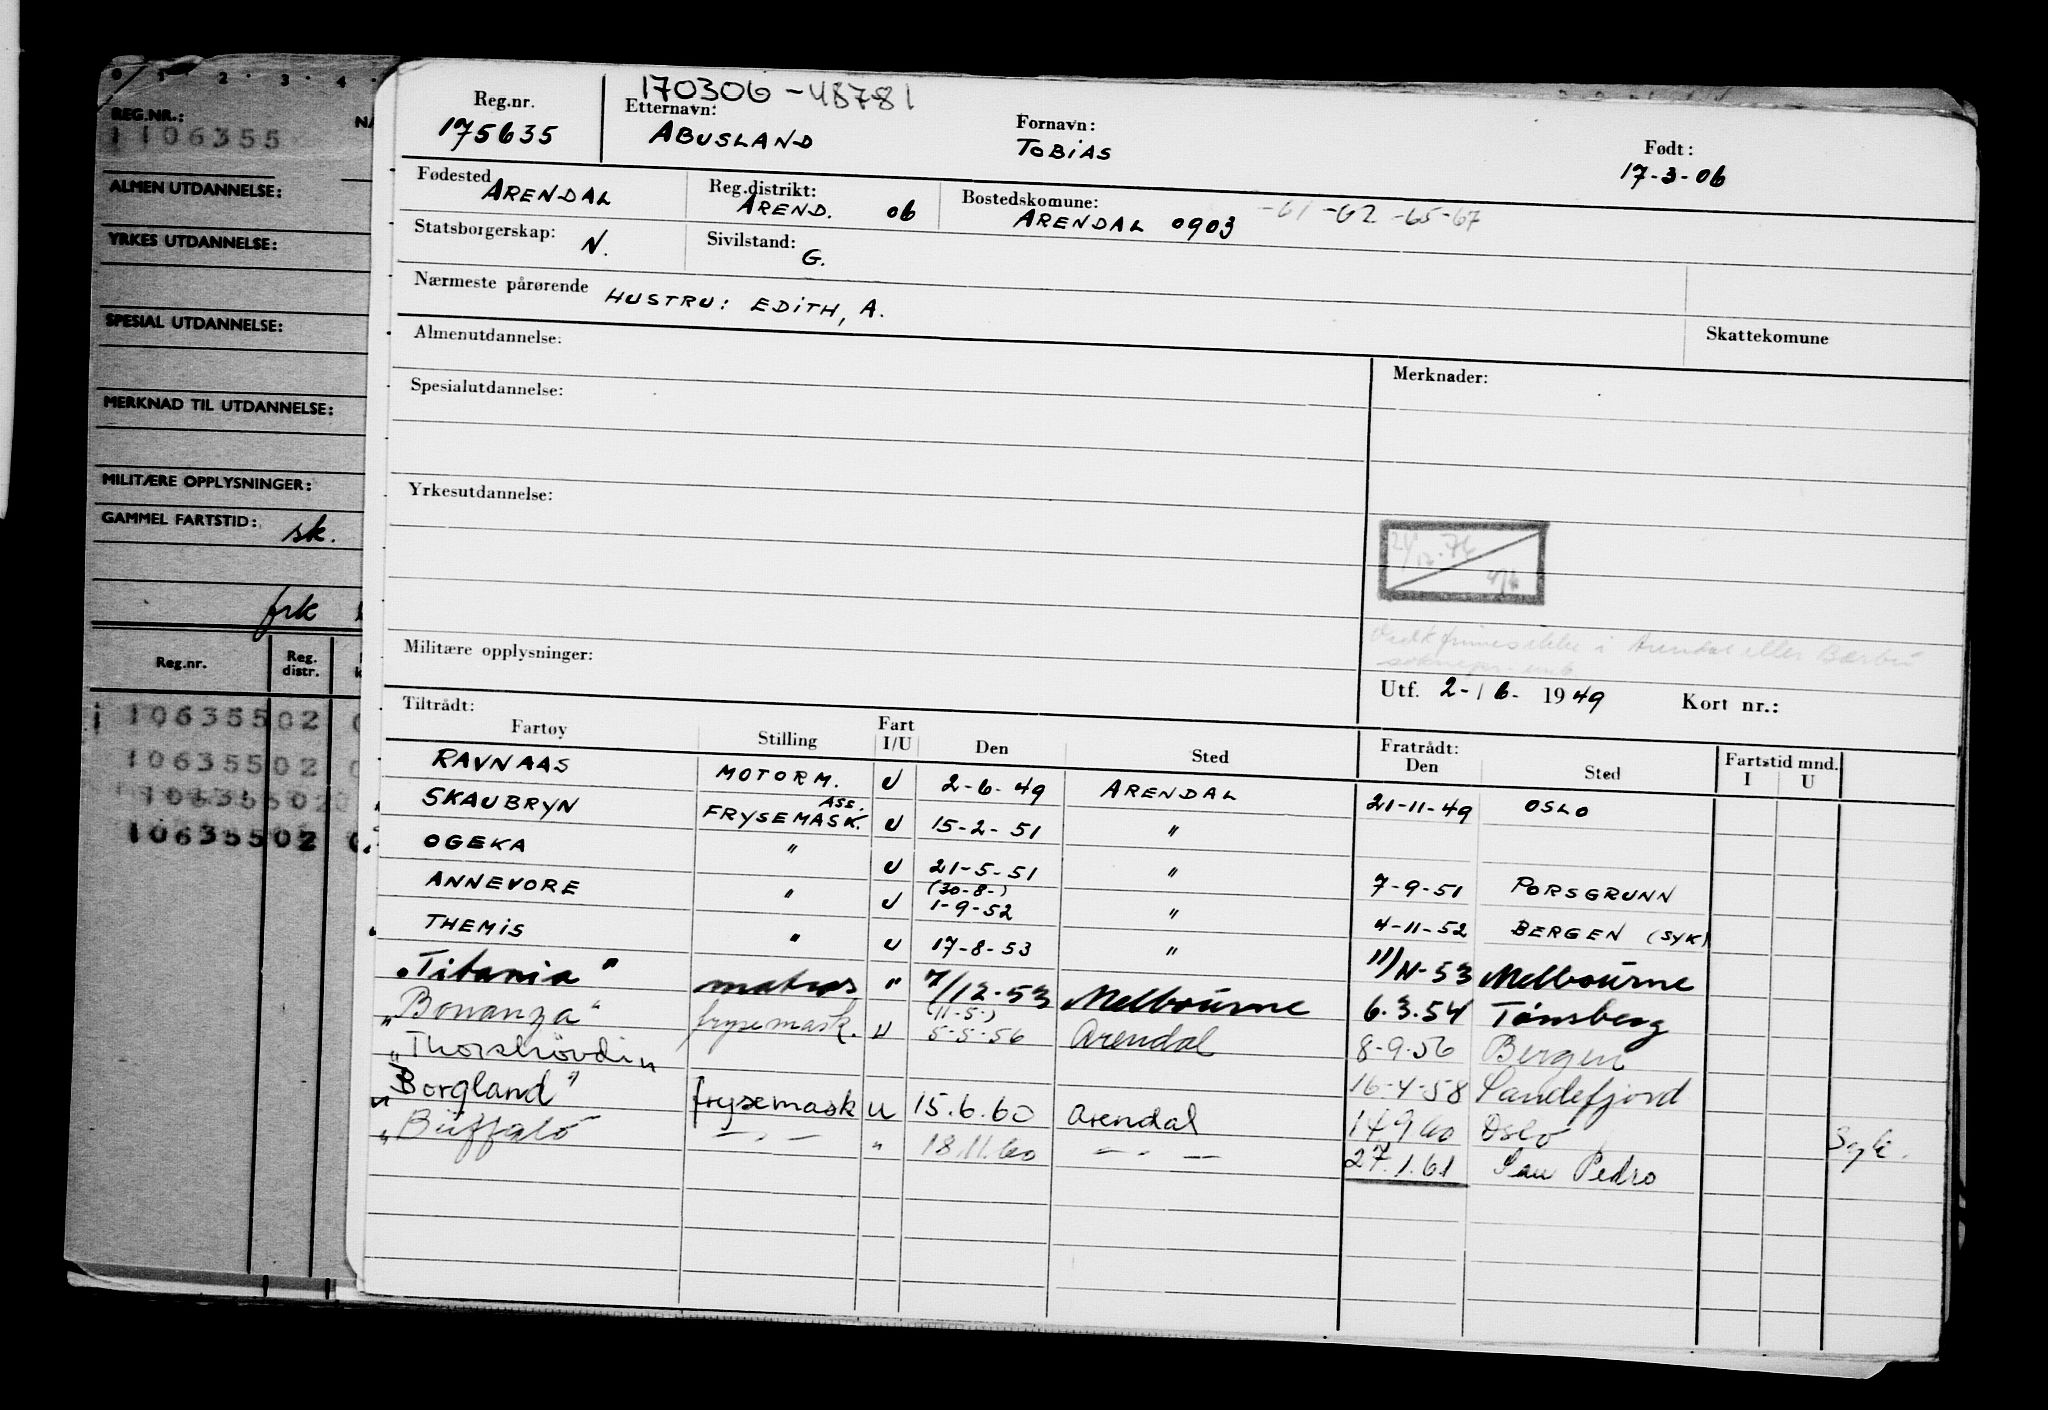 0 1 2 3 4
REG.NR.:
1106355
ALMEN UTDANNELSE:
YRKES UTDANNELSE:
SPESIAL UTDANNELSE:
MERKNAD TIL UTDANNELSE:
MILITÆRE OPPLYSNINGER:
GAMMEL FARTSTID: sk.
frk
Reg.nr. Reg. distr.
10635502
10635502
10635502
10635502
170306-48781
Reg.nr. Etternavn: Fornavn: Født:
175635 ABUSLAND TOBIAS 17-3-06
Fødested Reg.distrikt: Bostedskomune: -61 -62 -65-67
ARENDAL AREND. 06 ARENDAL 0903
Statsborgerskap: N. Sivilstand: G.
Nærmeste pårørende HUSTRU: EDITH, A.
Skattekomune
Almenutdannelse: Merknader:
Spesialutdannelse:
Yrkesutdannelse:
Militære opplysninger:
i Arendal eller
Utf. 2-6-1949 Kort nr.:
Tiltrådt: Fratrådt: Fartstid mnd.
Fartøy Stilling Fart I/U Den Sted Den Sted I U
RAVNAAS MOTORM. U 2-6-49 ARENDAL 21-11-49 OSLO
SKAUBRYN ASS. FRYSEMASK. U 15-2-51 "
OGEKA " U 21-5-51 " 7-9-51 PORSGRUNN
ANNEVORE " U (30-8-) 1-9-52 " 4-11-52 BERGEN (SYK)
THEMIS " U 17-8-53 " 11/11-53 Melbourne
"Titania" matros " 7/12-53 Melbourne 6.3.54 Tønsberg
"Bonanza" frysemask. U (11-5-) 5-5-56 Arendal 8-9-56 Bergen
"Thorshövdi" 16-4-58 Sandefjord
"Borgland" frysemask U 15.6.60 Arendal 14.9.60 Oslo
"Buffalo — " — " 18.11.60 — " — 27.1.61 San Pedro